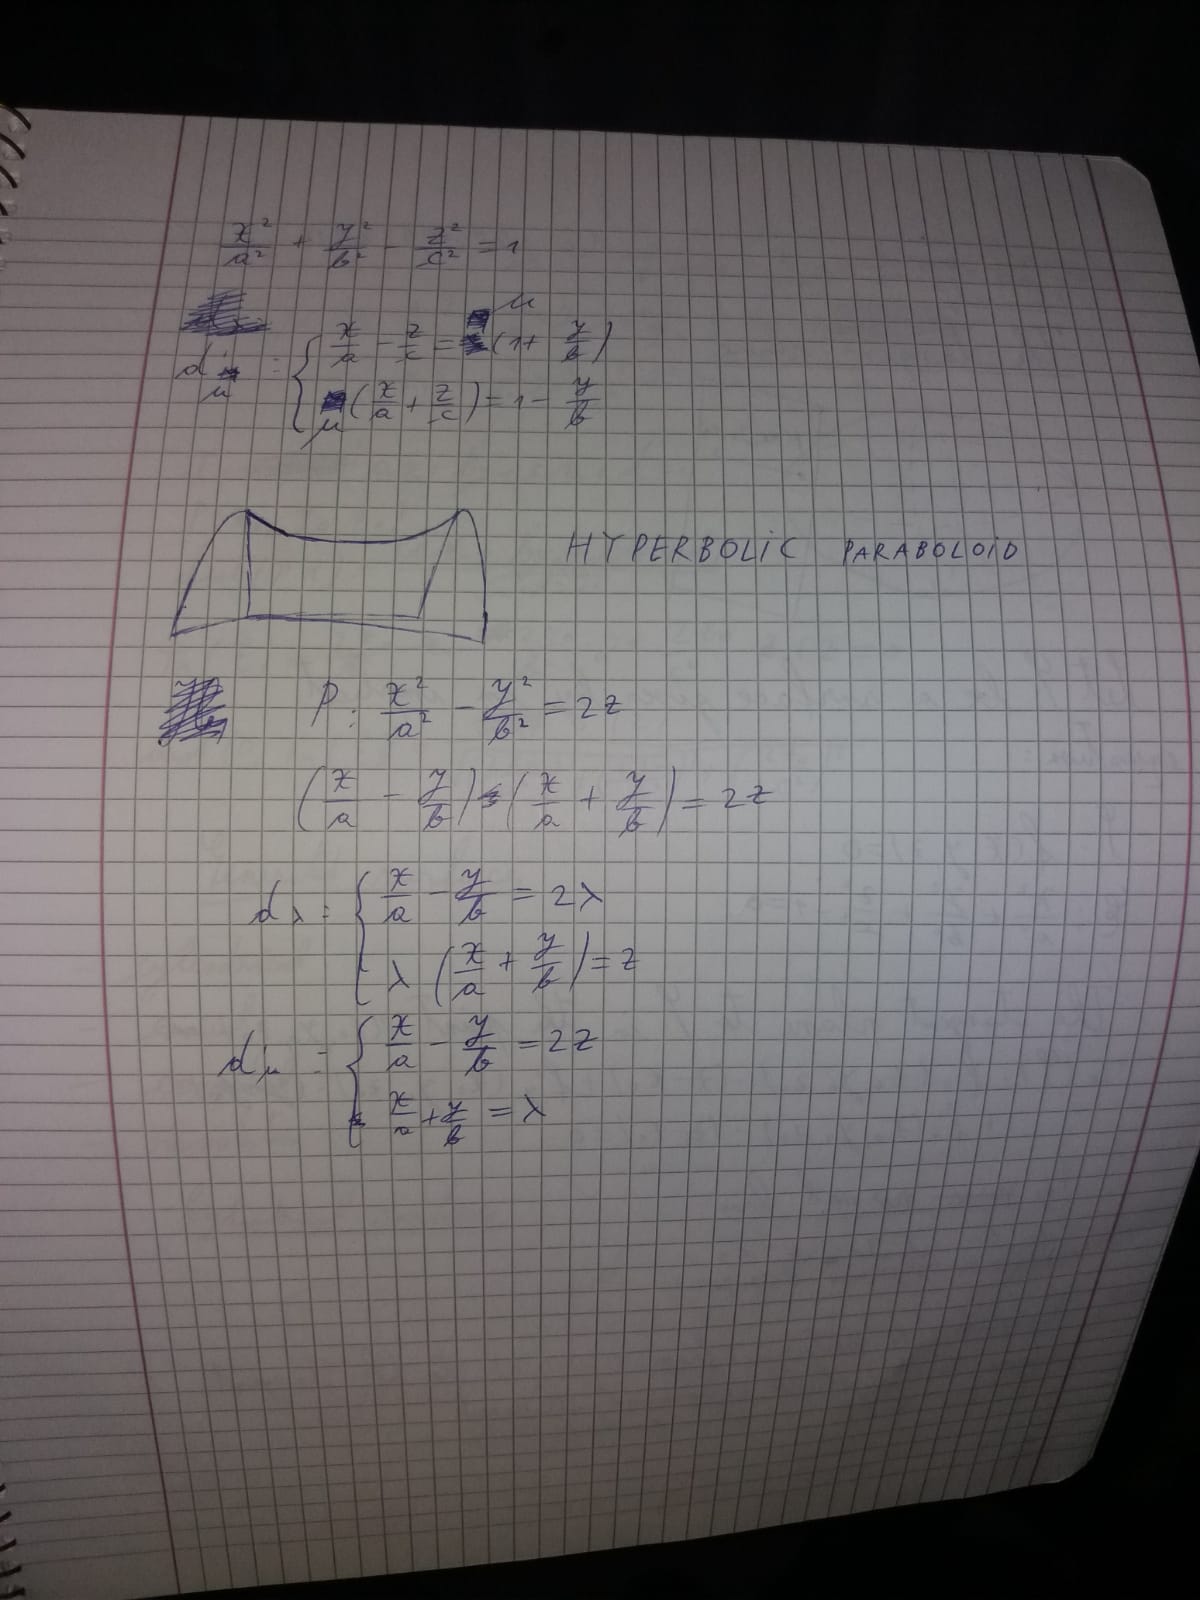 x²/a² + y²/b² - z²/c² = 1
d'μ = { x/a - z/c = μ (1 + y/b)
μ (x/a + z/c) = 1 - y/b
HYPERBOLIC PARABOLOID
P: x²/a² - y²/b² = 2z
(x/a - y/b) (x/a + y/b) = 2z
dλ = { x/a - y/b = 2λ
λ (x/a + y/b) = z
dμ = { x/a - y/b = 2z
x/a + y/b = λ